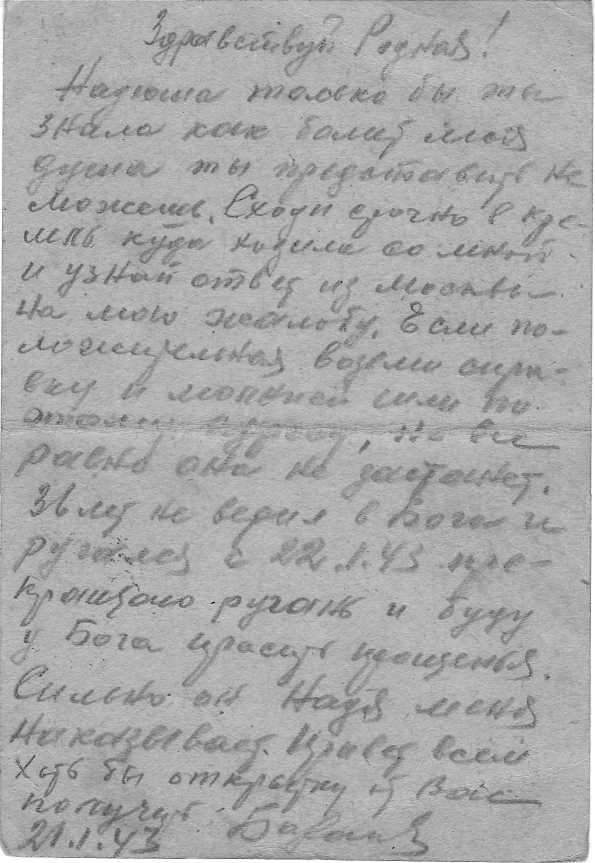 Здравствуй Родная!
Надюша только бы ты
знала как болит моя
душа ты представить не
можешь. Сходи срочно в Кре-
мль куда ходила со мной
и узнай ответ из Москвы
на мою жалобу. Если по-
ложительная возьми спра-
вку и молнией шли по
этому адресу, но все
равно она не застанет.
38 лет не верил в Бога и
ругался с 22.1.43 пре-
кращаю ругань и буду
у Бога просить прощенья.
Сильно он Надя меня
наказывает. Привет всем
Хоть бы открытку от Вас
получить
21.1.43